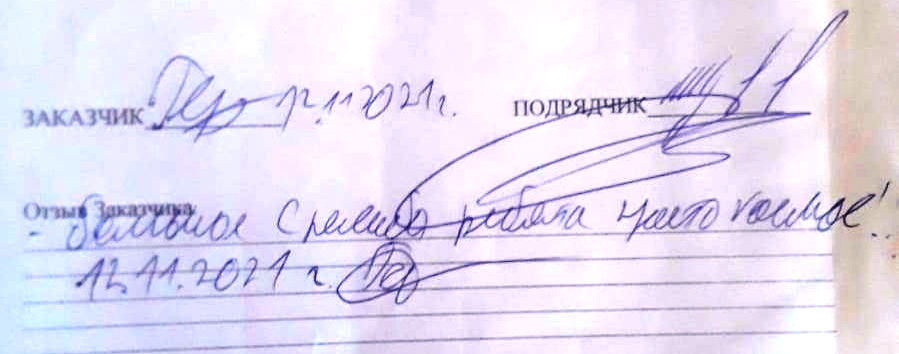 ЗАКАЗЧИК 12.11.2021г. ПОДРЯДЧИК
Отзыв Заказчика
- большое спасибо ребята просто космос!
12.11.2021 г.